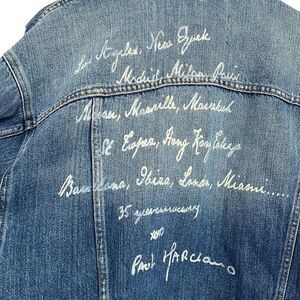 Los Angeles, New York
Madrid, Milan, Paris
Marseille, Marrakech
St Tropez, Hong Kong Tokyo
Barcelona, Ibiza, London, Miami.....
35
xoxo
Paul Marciano